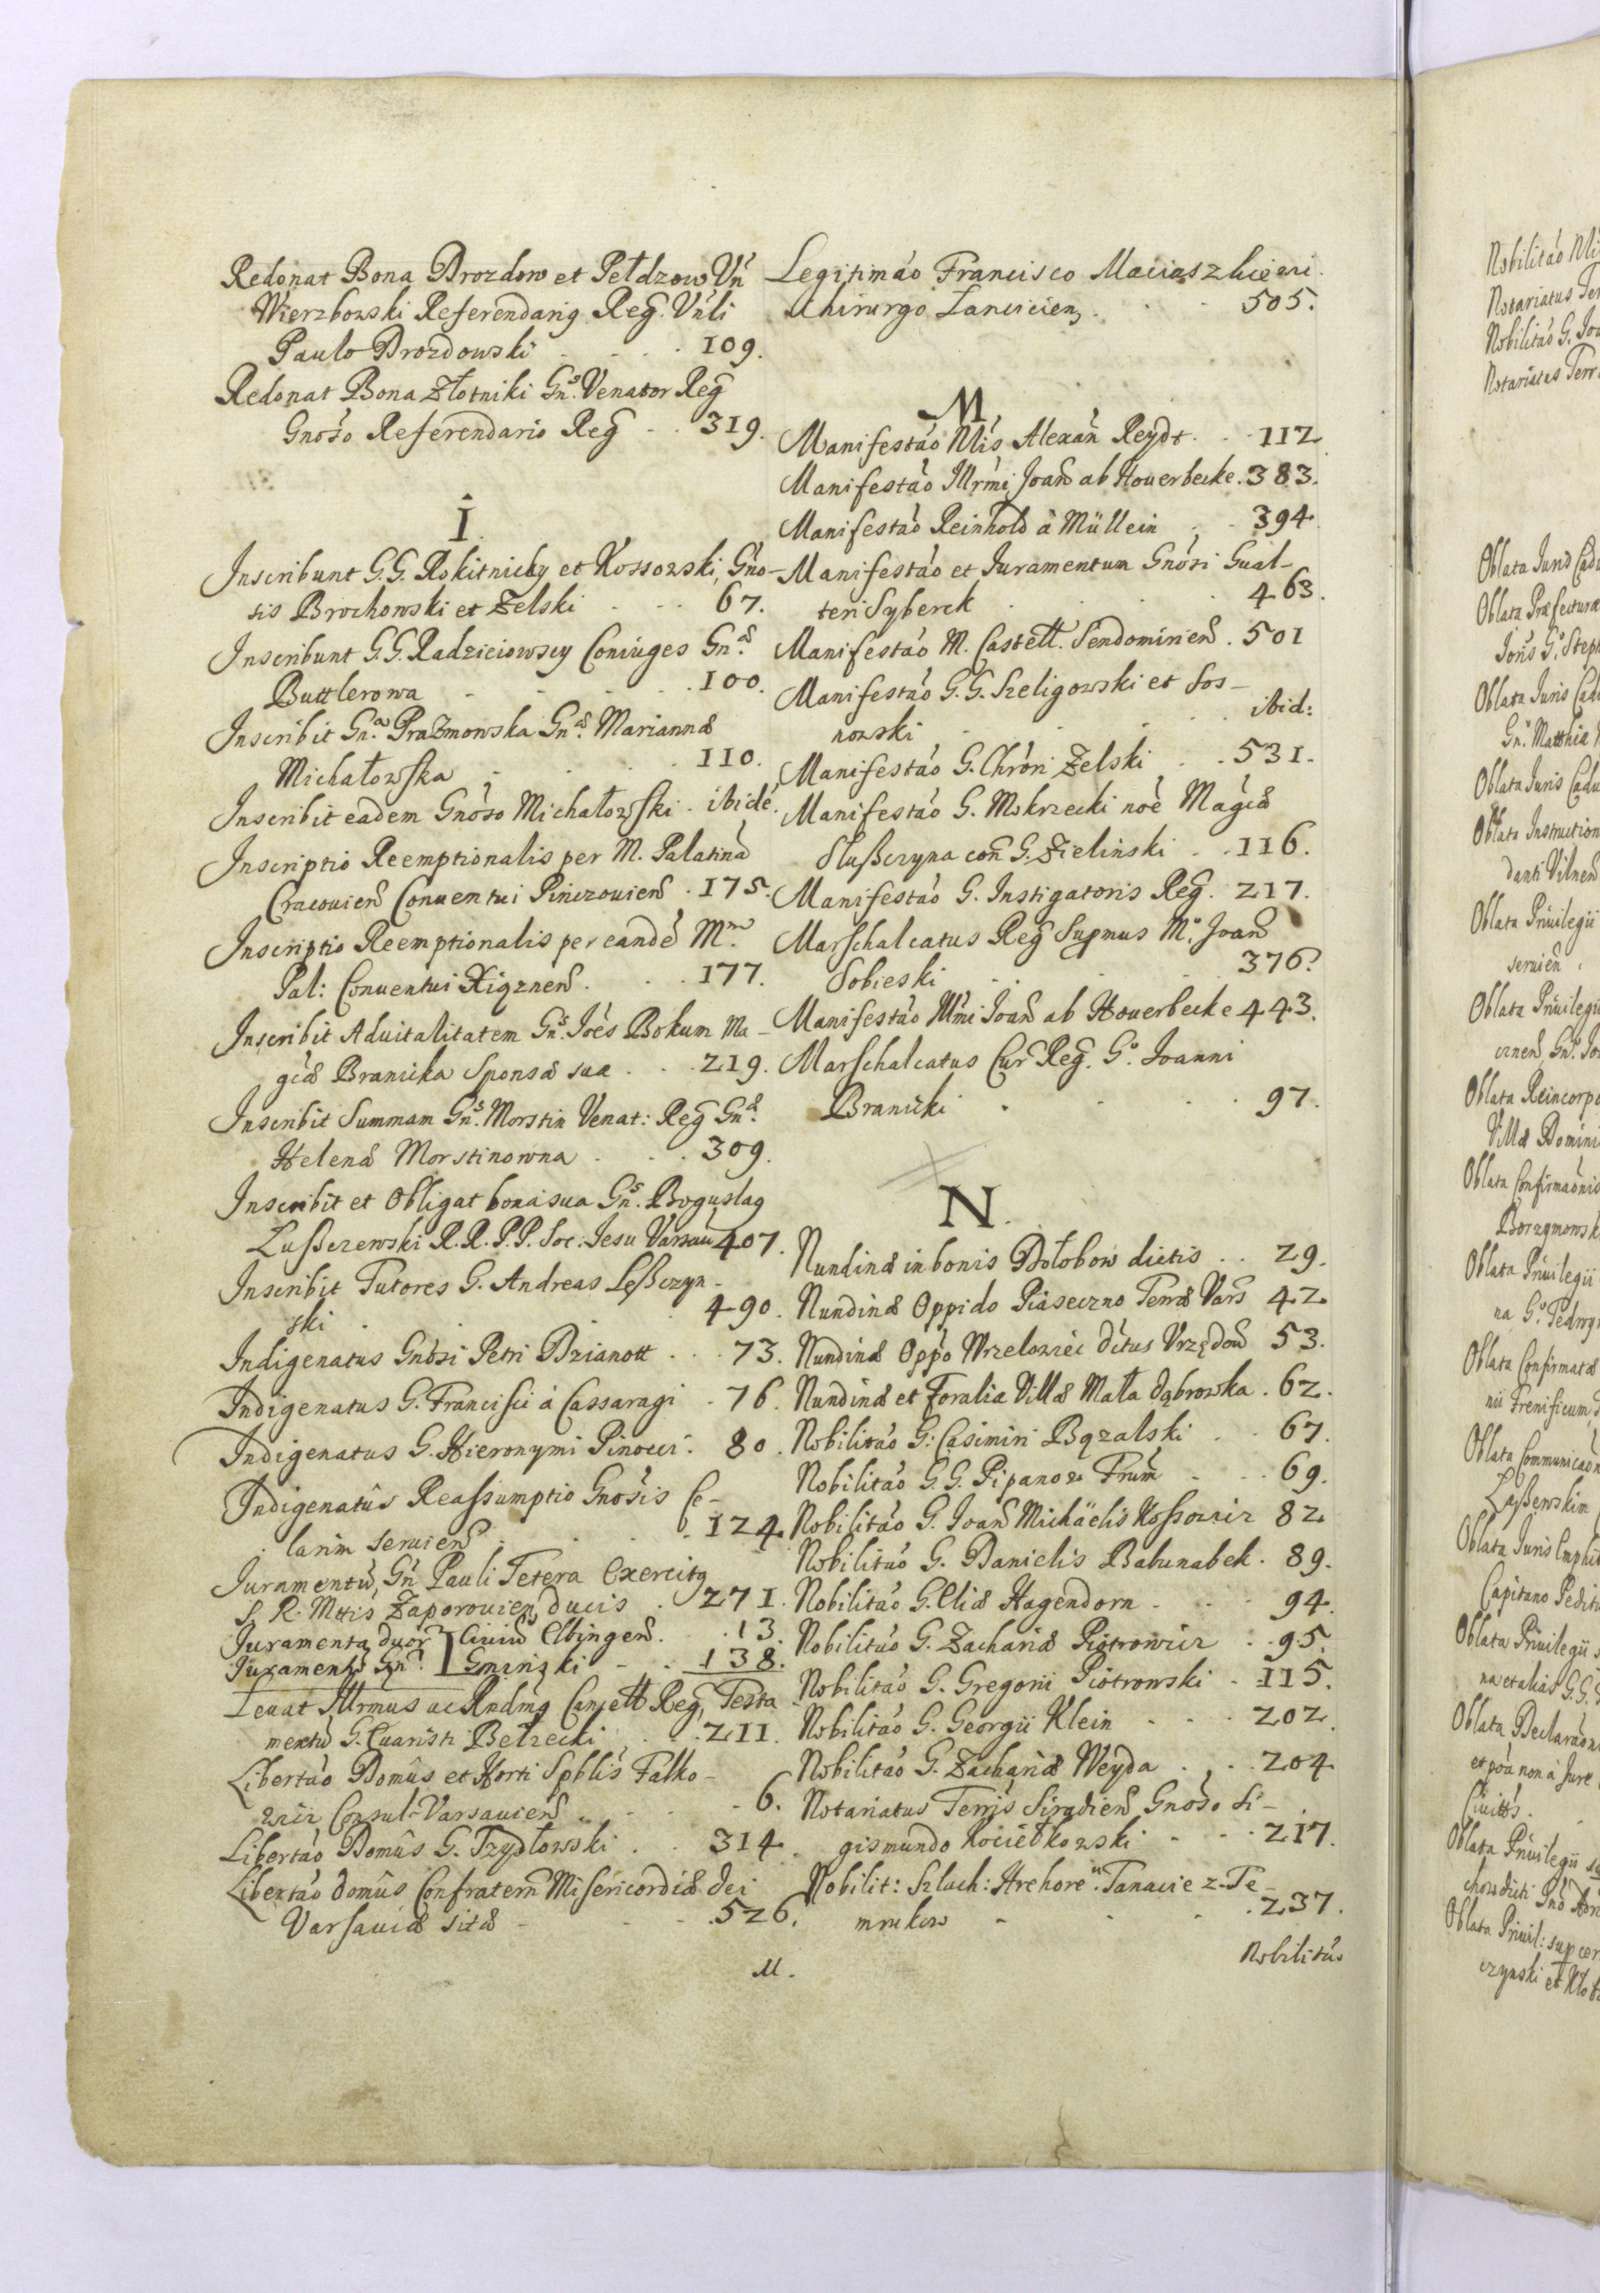 Redonat Bona Drozdow et Pełdzow Vń
Wierzbowski Referendarig Reg. Vńli
Paulo Drozdowski . . . . 109.
Redonat Bona Złotniki Gn̄s. Venator Reg̃
Gnoso Referendario Reg̃ . . 319.
I.
Inscribunt G.G. Rokitniccy et Kossowski, Gńo-
sis Brochowski et Zelski . . . 67.
Inscribunt G.G. Radzieiowscy Coniuges Gnæ.
Buttlerowa . . . . 100.
Inscribit Gna. Prazmowska Gnæ. Mariannæ
Michałowska . . . . 110.
Inscribit eadem Gnoso Michałowski . ibidé.
Inscriptio Reemptionalis per M. Palatinã
Cracouień Conuentui Pinczouień . 175.
Inscriptio Reemptionalis per eandé Mm.
Pal: Conuentui Xiązneń . . . 177.
Inscribit Aduitalitatem Gns. Joés Bokum Ma-
gćæ Branicka Sponsæ suæ . . . 219.
Inscribit Summam Gns. Morstin Venat: Reg̃ Gnæ.
Helenæ Morstinowna . . . 309.
Inscribit et Obligat bona sua Gns. Boguslag
Lußczewski R.R.P.P. Soc. Jesu Varsau 407.
Inscribit Tutores G. Andreas Leßczyn-
ski . . . . 490.
Indigenatus Gnosi Petri Bzianott . . . 73.
Indigenatus G. Francisci á Cassaragi . 76.
Indigenatus G. Hieronymi Pinocci . 80.
Indigenatûs Reassumptio Gnosis Ce-
larim seruień . . . . 124.
Juramentũ, Gń Pauli Tetera Exercitg
S. R. Mttis Zaporouień, ducis . 271.
Juramenta duor̃ Ciuiũ Elbingeń . . 13.
Juramentũ Gn. Gninski . . . 138.
Leuat Illrmus ac Rndmg Cancell Reg, Testa
mentũ G. Euaristi Bełzecki . . . 211.
Libertáo Domûs et Horti Spblis Falko-
wicz Consul. Varsauień . . . . 6.
Libertáo Domûs G. Trzydłowski . . 314.
Libertáo domûs Confratern̄ Misericordiæ Dei
Varsauiæ sitæ . . . . 526.
M.
Legitimáo Francisco Maciaszkieви
Chirurgo Lancicien, . . . 505.
M
Manifestáo Mis Alexań Reydt . . . 112
Manifestáo Illrmi Joań ab Houerbecke . 383.
Manifestáo Reinhold à Müllein . . 394
Manifestáo et Juramentum Gnosi Gual-
teri Syberck . . . . 463.
Manifestáo M. Castell. Sendomirień . 501
Manifestáo G.G. Szeligowski et Sos-
nowski . . . . ibid:
Manifestáo G. Chróri Zelski . . 531.
Manifestáo G. Mokrzecki noé Mágćæ
Słußczyna coń G. Zielinski . . 116.
Manifestáo G. Instigatoris Reg̃. 217.
Marschalcatus Reg̃ Supmus Mo. Joań
Sobieski . . . . 376.
Manifestáo Illmi Joań ab Houerbecke 443.
Marschalcatus Cur̃ Reg̃. Go. Joanni
Branicki . . . . 97.
N.
Nundinæ in bonis Dołobow dictis . . 29.
Nundinæ Oppido Piaseczno Terræ Vars 42
Nundinæ Oppo Wrzelowiec dictus Vrzędow 53.
Nundinæ et Foralia Villæ Mała dąbrowka . 62.
Nobilitáo G: Casimiri Bązalski . . 67.
Nobilitáo G.G. Pipanow Frum̃ . . . 69.
Nobilitáo G. Joań Michäelis Kossowicz 82
Nobilitáo G. Danielis Babunabek . 89.
Nobilitáo G. Eliæ Hagendorn . . . 94.
Nobilitáo G. Zachariæ Piotrowicz . . 95.
Nobilitáo G. Gregorii Piotrowski . 115.
Nobilitáo G. Georgii Klein . . . 202.
Nobilitáo G. Zachariæ Weyda . . . 204
Notariatus Terris Siradień Gnoso Si-
gismundo Kociełkowski . . . . 217.
Nobilit: Szlach: Hrehore. Tanacie z Te-
mrukow . . . . 237.
Nobilitáo
Nobilitáo
Notariatus Ter
Nobilitáo G. Joa
Notariatus Terr
Oblata Juris Cadu
Oblata Præfecturæ
Joris Go. Steph
Oblata Juris Cadu
Gn. Matthia
Oblata Juris Cadu
Oblata Instruction
danti Vilneń
Oblata Priuilegii
seruień
Oblata Priuilegii
Oblata Reincorpo
Villæ Domini
Oblata Confirmaónis
Oblata Priuilegii
Oblata Confirmatæ
Oblata Communicaón
Oblata Juris Emphit
Capitano Peditu
Oblata Priuilegii
Oblata Declaraón
et póa non à Jure
Ciuitts.
Oblata Priuilegii
Oblata Priuil: sup cer
czynski et Kło